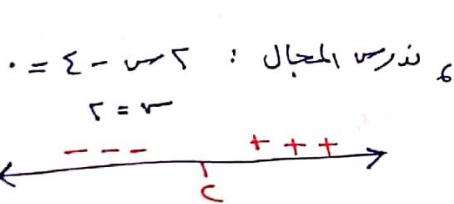 ندرس المجال : ٢س - ٤ = ٠
س = ٢
- - - + + +
٢